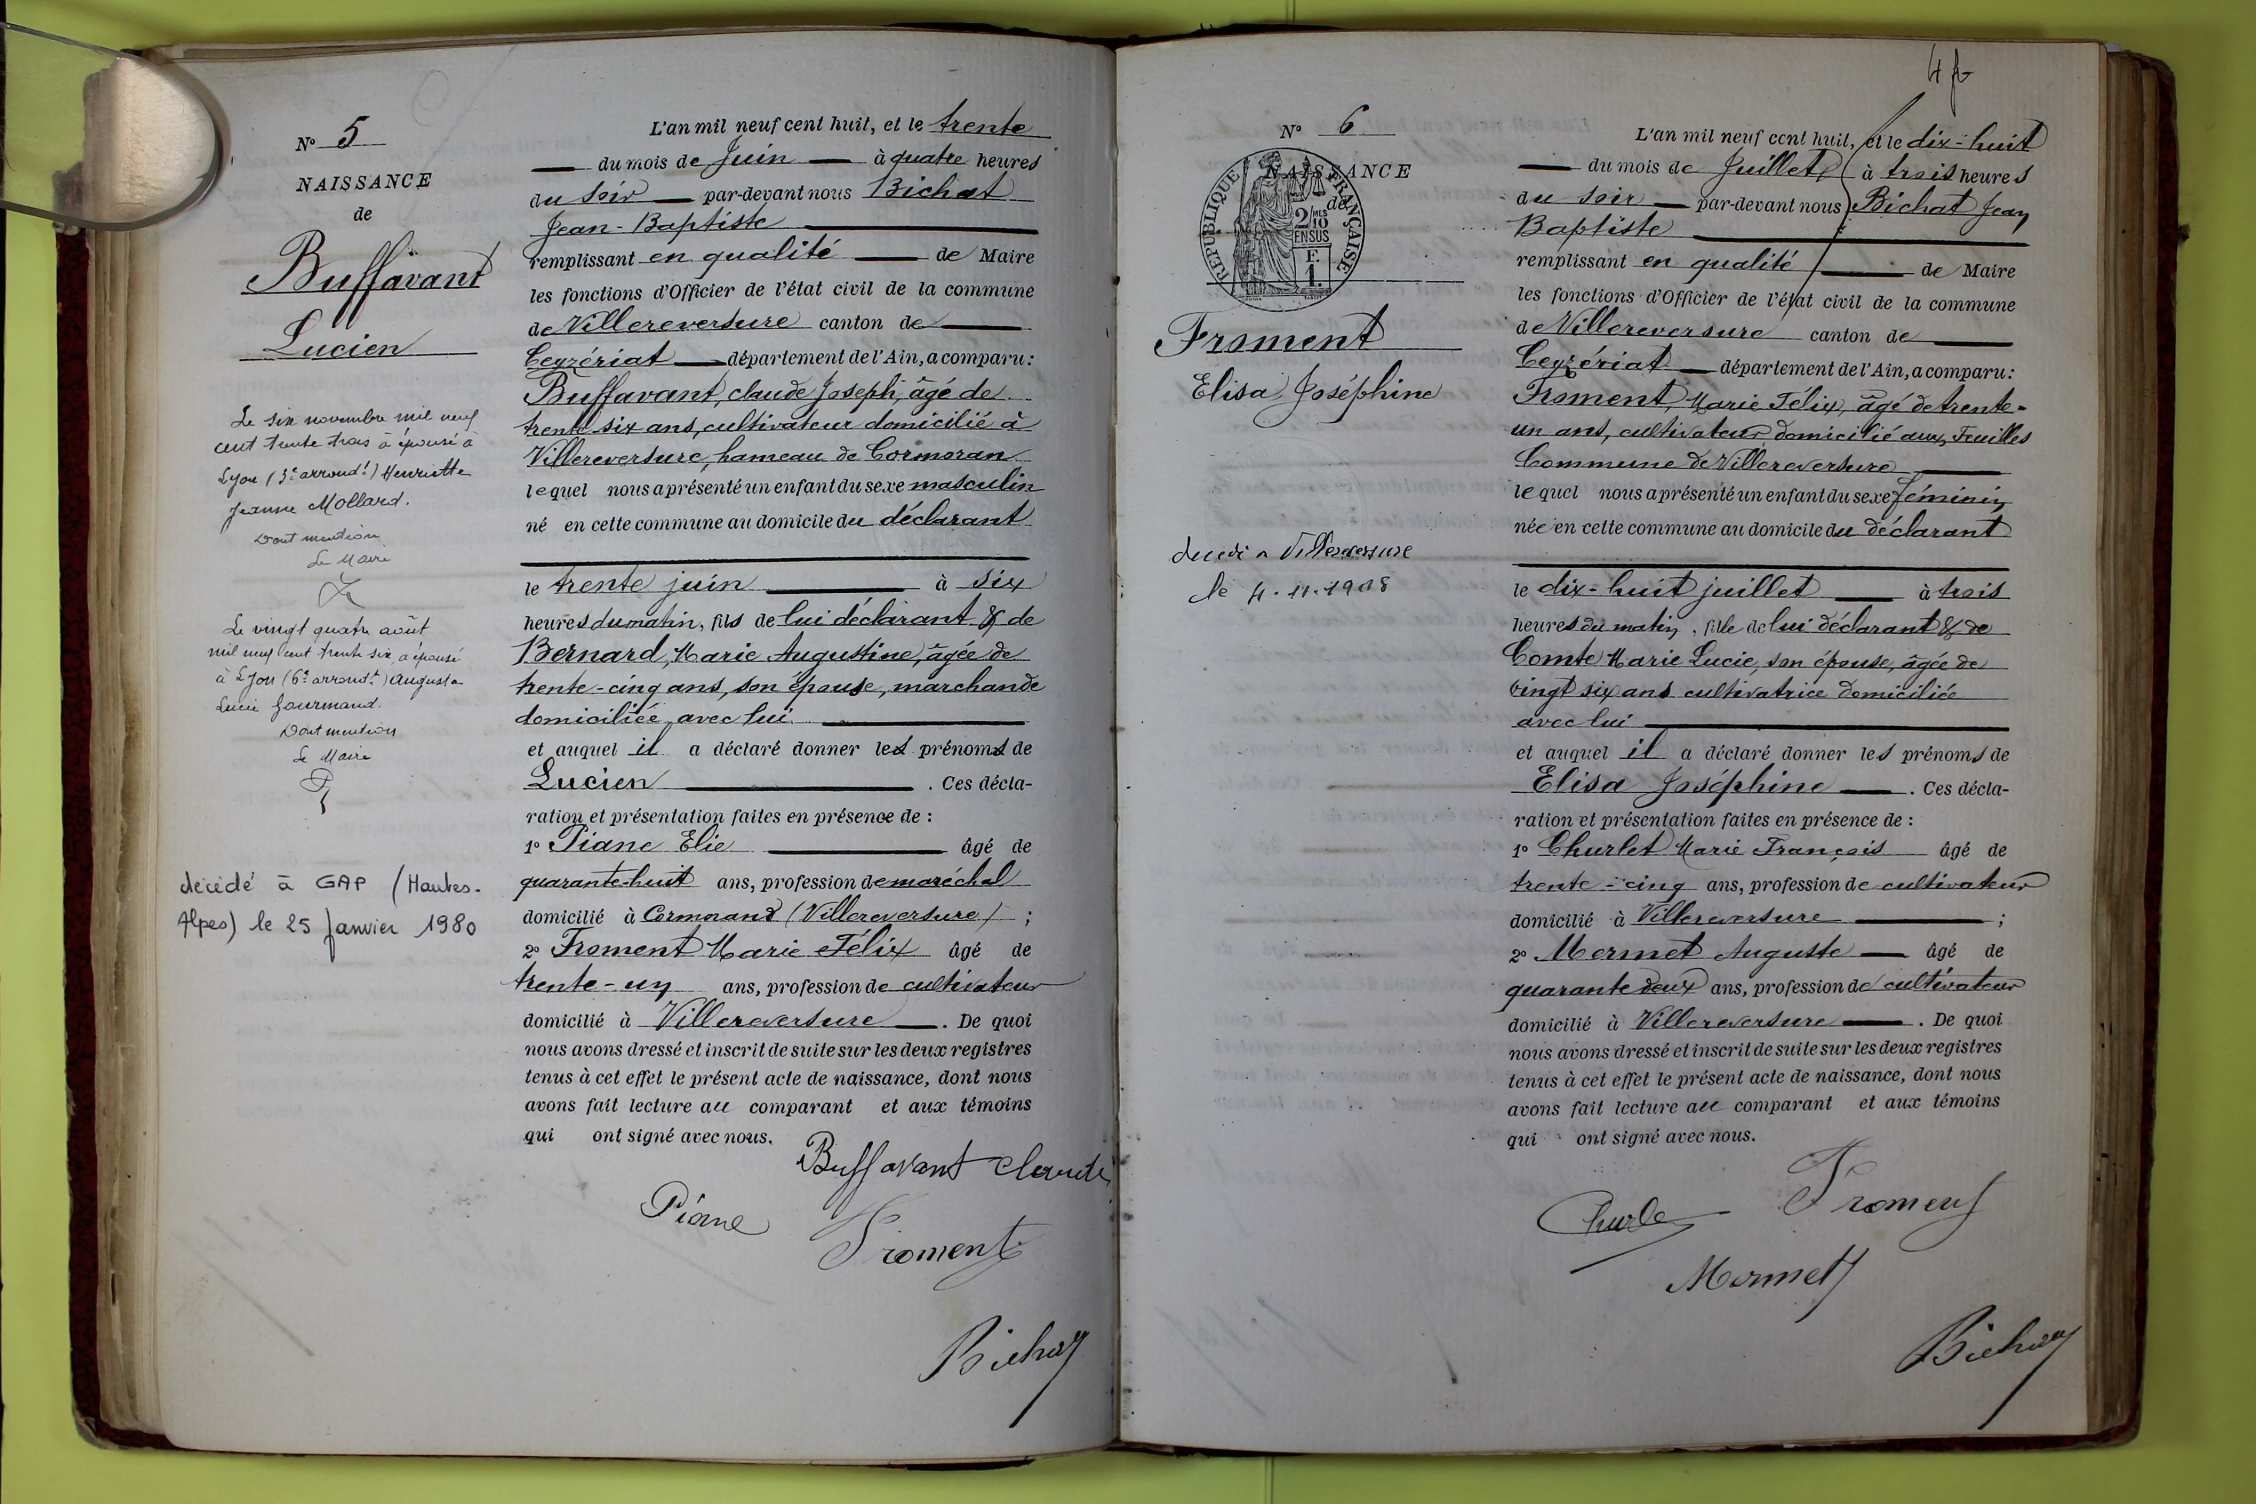 N° 5
NAISSANCE
de
Buffavant
Lucien
Le six novembre mil neuf
cent trente trois a épousé à
Lyon (3e arrondt) Henriette
Jeanne Mollard.
Dont mention
Le Maire
Le vingt quatre août
mil neuf cent trente six a épousé
à Lyon (6e arrondt) Augusta
Lucie Gourmand.
Dont mention
Le Maire
décédé à GAP (Hautes-
Alpes) le 25 Janvier 1980
L'an mil neuf cent huit, et le trente
du mois de Juin à quatre heures
du soir par-devant nous Bichat
Jean-Baptiste
remplissant en qualité de Maire
les fonctions d'Officier de l'état civil de la commune
de Villereversure canton de
Ceyzériat département de l'Ain, a comparu:
Buffavant, claude Joseph, âgé de
trente six ans, cultivateur domicilié à
Villereversure, hameau de Cormoran
lequel nous a présenté un enfant du sexe masculin
né en cette commune au domicile du déclarant
le trente juin à six
heures du matin, fils de lui déclarant & de
Bernard, Marie Augustine, âgée de
trente-cinq ans, son épouse, marchande
domiciliée avec lui
et auquel il a déclaré donner les prénoms de
Lucien . Ces décla-
ration et présentation faites en présence de :
1° Piane Elie âgé de
quarante-huit ans, profession de maréchal
domicilié à Cormorand (Villereversure) ;
2° Froment Marie Félix âgé de
trente-un ans, profession de cultivateur
domicilié à Villereversure . De quoi
nous avons dressé et inscrit de suite sur les deux registres
tenus à cet effet le présent acte de naissance, dont nous
avons fait lecture au comparant et aux témoins
qui ont signé avec nous.
Buffavant Claude
Piane
Froment
Bichat
N° 6
NAISSANCE
de
RÉPUBLIQUE FRANÇAISE
2/10
EN SUS
F.
1.
Froment
Elisa Joséphine
décédé à Villereversure
le 4.11.1908
L'an mil neuf cent huit, et le dix-huit
du mois de Juillet à trois heures
du soir par-devant nous Bichat Jean
Baptiste
remplissant en qualité de Maire
les fonctions d'Officier de l'état civil de la commune
de Villereversure canton de
Ceyzériat département de l'Ain, a comparu:
Froment, Marie Félix, âgé de trente-
un ans, cultivateur domicilié aux Feuilles
Commune de Villereversure
lequel nous a présenté un enfant du sexe féminin
née en cette commune au domicile du déclarant
le dix-huit juillet à trois
heures du matin, fille de lui déclarant & de
Comte Marie Lucie, son épouse, âgée de
vingt six ans cultivatrice domiciliée
avec lui
et auquel il a déclaré donner les prénoms de
Elisa Joséphine . Ces décla-
ration et présentation faites en présence de :
1° Churlet Marie François âgé de
trente-cinq ans, profession de cultivateur
domicilié à Villereversure ;
2° Mermet Auguste âgé de
quarante deux ans, profession de cultivateur
domicilié à Villereversure . De quoi
nous avons dressé et inscrit de suite sur les deux registres
tenus à cet effet le présent acte de naissance, dont nous
avons fait lecture au comparant et aux témoins
qui ont signé avec nous.
Froment
Churlet
Mermet
Bichat